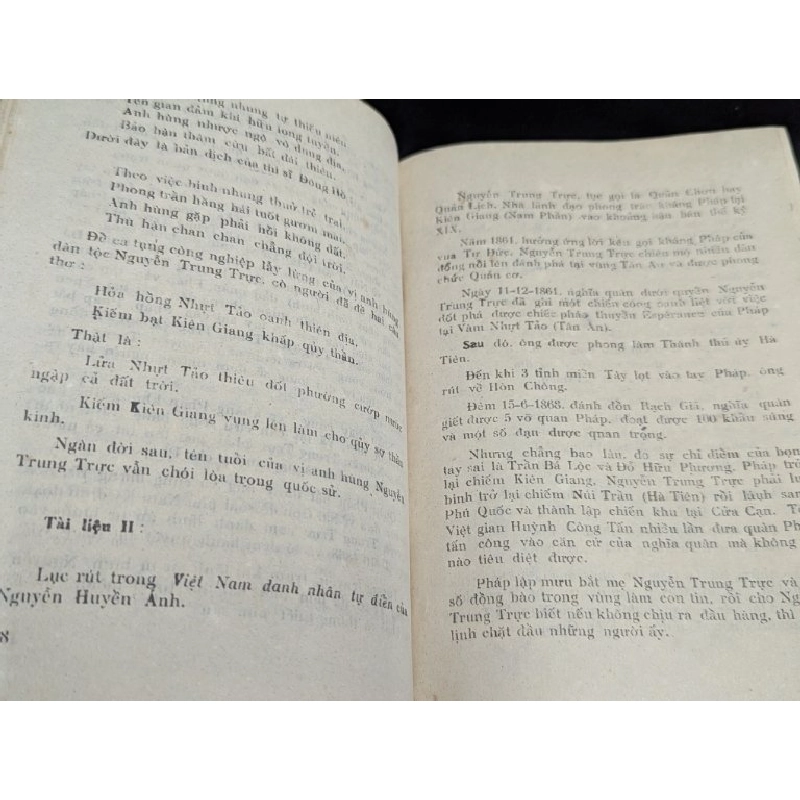 nhung tự thiếu niên
Yên gian đảm khí hữu long tuyền,
Anh hùng nhược ngộ vô dung địa,
Bão hận thâm cừu bất đái thiên.
Dưới đây là bản dịch của thi sĩ Đông Hồ :
Theo việc binh nhung thuở trẻ trai,
Phong trần hăng hái tuốt gươm mai.
Anh hùng gặp phải hồi không đất.
Thù hận chan chan chẳng đội trời.
Để ca tụng công nghiệp lẫy lừng của vị anh hùng
dân tộc Nguyễn Trung Trực, có người đã đề hai câu
thơ :
Hỏa hồng Nhựt Tảo oanh thiên địa,
Kiếm bạt Kiên Giang khấp qủy thần.
Thật là :
Lửa Nhựt Tảo thiêu đốt phường cướp nước
ngập cả đất trời.
Kiếm Kiên Giang vung lên làm cho qủy sợ thần
kinh.
Ngàn đời sau, tên tuổi của vị anh hùng Nguyễn
Trung Trực vẫn chói lòa trong quốc sử.
Tài liệu II :
Lục rút trong Việt Nam danh nhân tự điển của
Nguyễn Huyền Anh.
8
Nguyễn Trung Trực, tục gọi là Quản Chơn hay
Quản Lịch. Nhà lãnh đạo phong trào kháng Pháp tại
Kiên Giang (Nam Phần) vào khoảng bán thế kỷ
XIX.
Năm 1861, hưởng ứng lời kêu gọi kháng Pháp của
vua Tự Đức, Nguyễn Trung Trực chiêu mộ nhiều dân
đồng nổi lên đánh phá tại vùng Tân An và được phong
chức Quản cơ.
Ngày 11-12-1861, nghĩa quân dưới quyền Nguyễn
Trung Trực đã ghi một chiến công oanh liệt với việc
đốt phá được chiếc pháo thuyền Espérance của Pháp
tại Vàm Nhựt Tảo (Tân An).
Sau đó, ông được phong làm Thành thủ úy Hà
Tiên.
Đến khi 3 tỉnh miền Tây lọt vào tay Pháp, ông
rút về Hòn Chông.
Đêm 15-6-1868, đánh đồn Rạch Giá, nghĩa quân
giết được 5 võ quan Pháp, đoạt được 100 khẩu súng
và một số đạn dược quan trọng.
Nhưng chẳng bao lâu, do sự chỉ điểm của bọn
tay sai là Trần Bá Lộc và Đỗ Hữu Phương, Pháp trở
lại chiếm Kiên Giang, Nguyễn Trung Trực phải
binh trở lại chiếm Núi Trầu (Hà Tiên) rồi
Phú Quốc và thành lập chiến khu tại Cửa Cạn.
Việt gian Huỳnh Công Tấn nhiều lần đưa quân
tấn công vào căn cứ của nghĩa quân mà không
nào tiêu diệt được.
Pháp lập mưu bắt mẹ Nguyễn Trung Trực và
số đồng bào trong vùng làm con tin, rồi cho
Trung Trực biết nếu không chịu ra đầu hàng, thì
lịnh chặt đầu những người ấy.